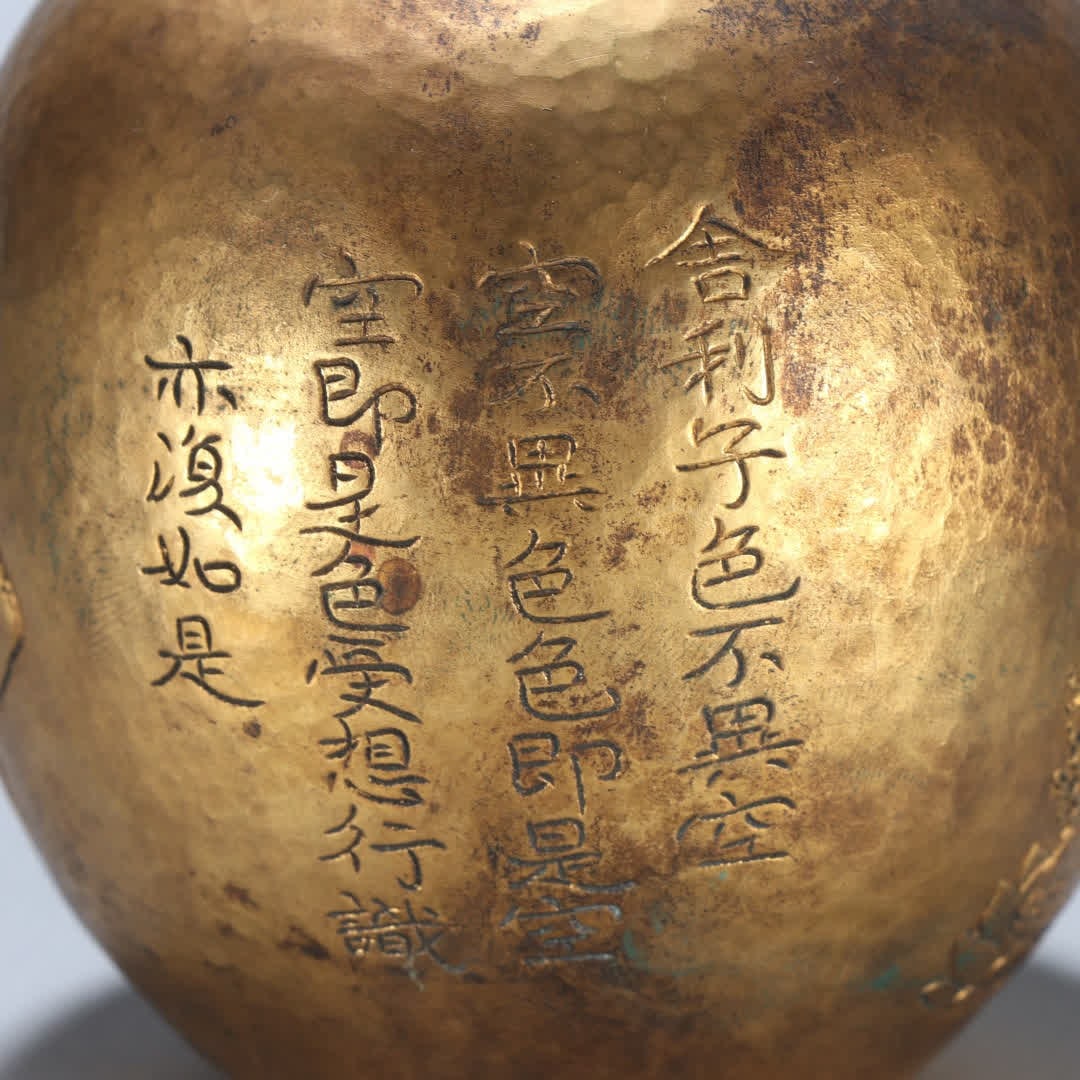 舎利子色不異空
空不異色色即是空
空即是色受想行識
亦復如是